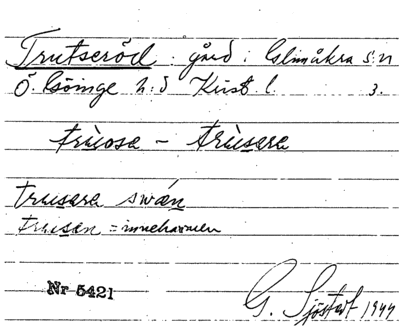 Trutseröd. gård i Glimåkra sn
Ö. Göinge h.d Krist. l. 3.
trùosa - trùsara
trusara swán
trusen = innehavaren
Nr 5421
G. Sjöstedt 1944